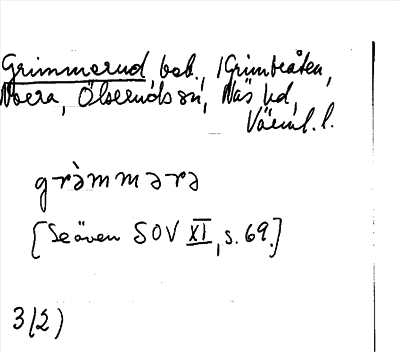 Grimmerud, beb., /Grimbråten,
Noera, Ölseruds sn, Näs hd,
Värml. l.
grı̀mmərə
[Se även SOV XI, s. 69.]
3(2)